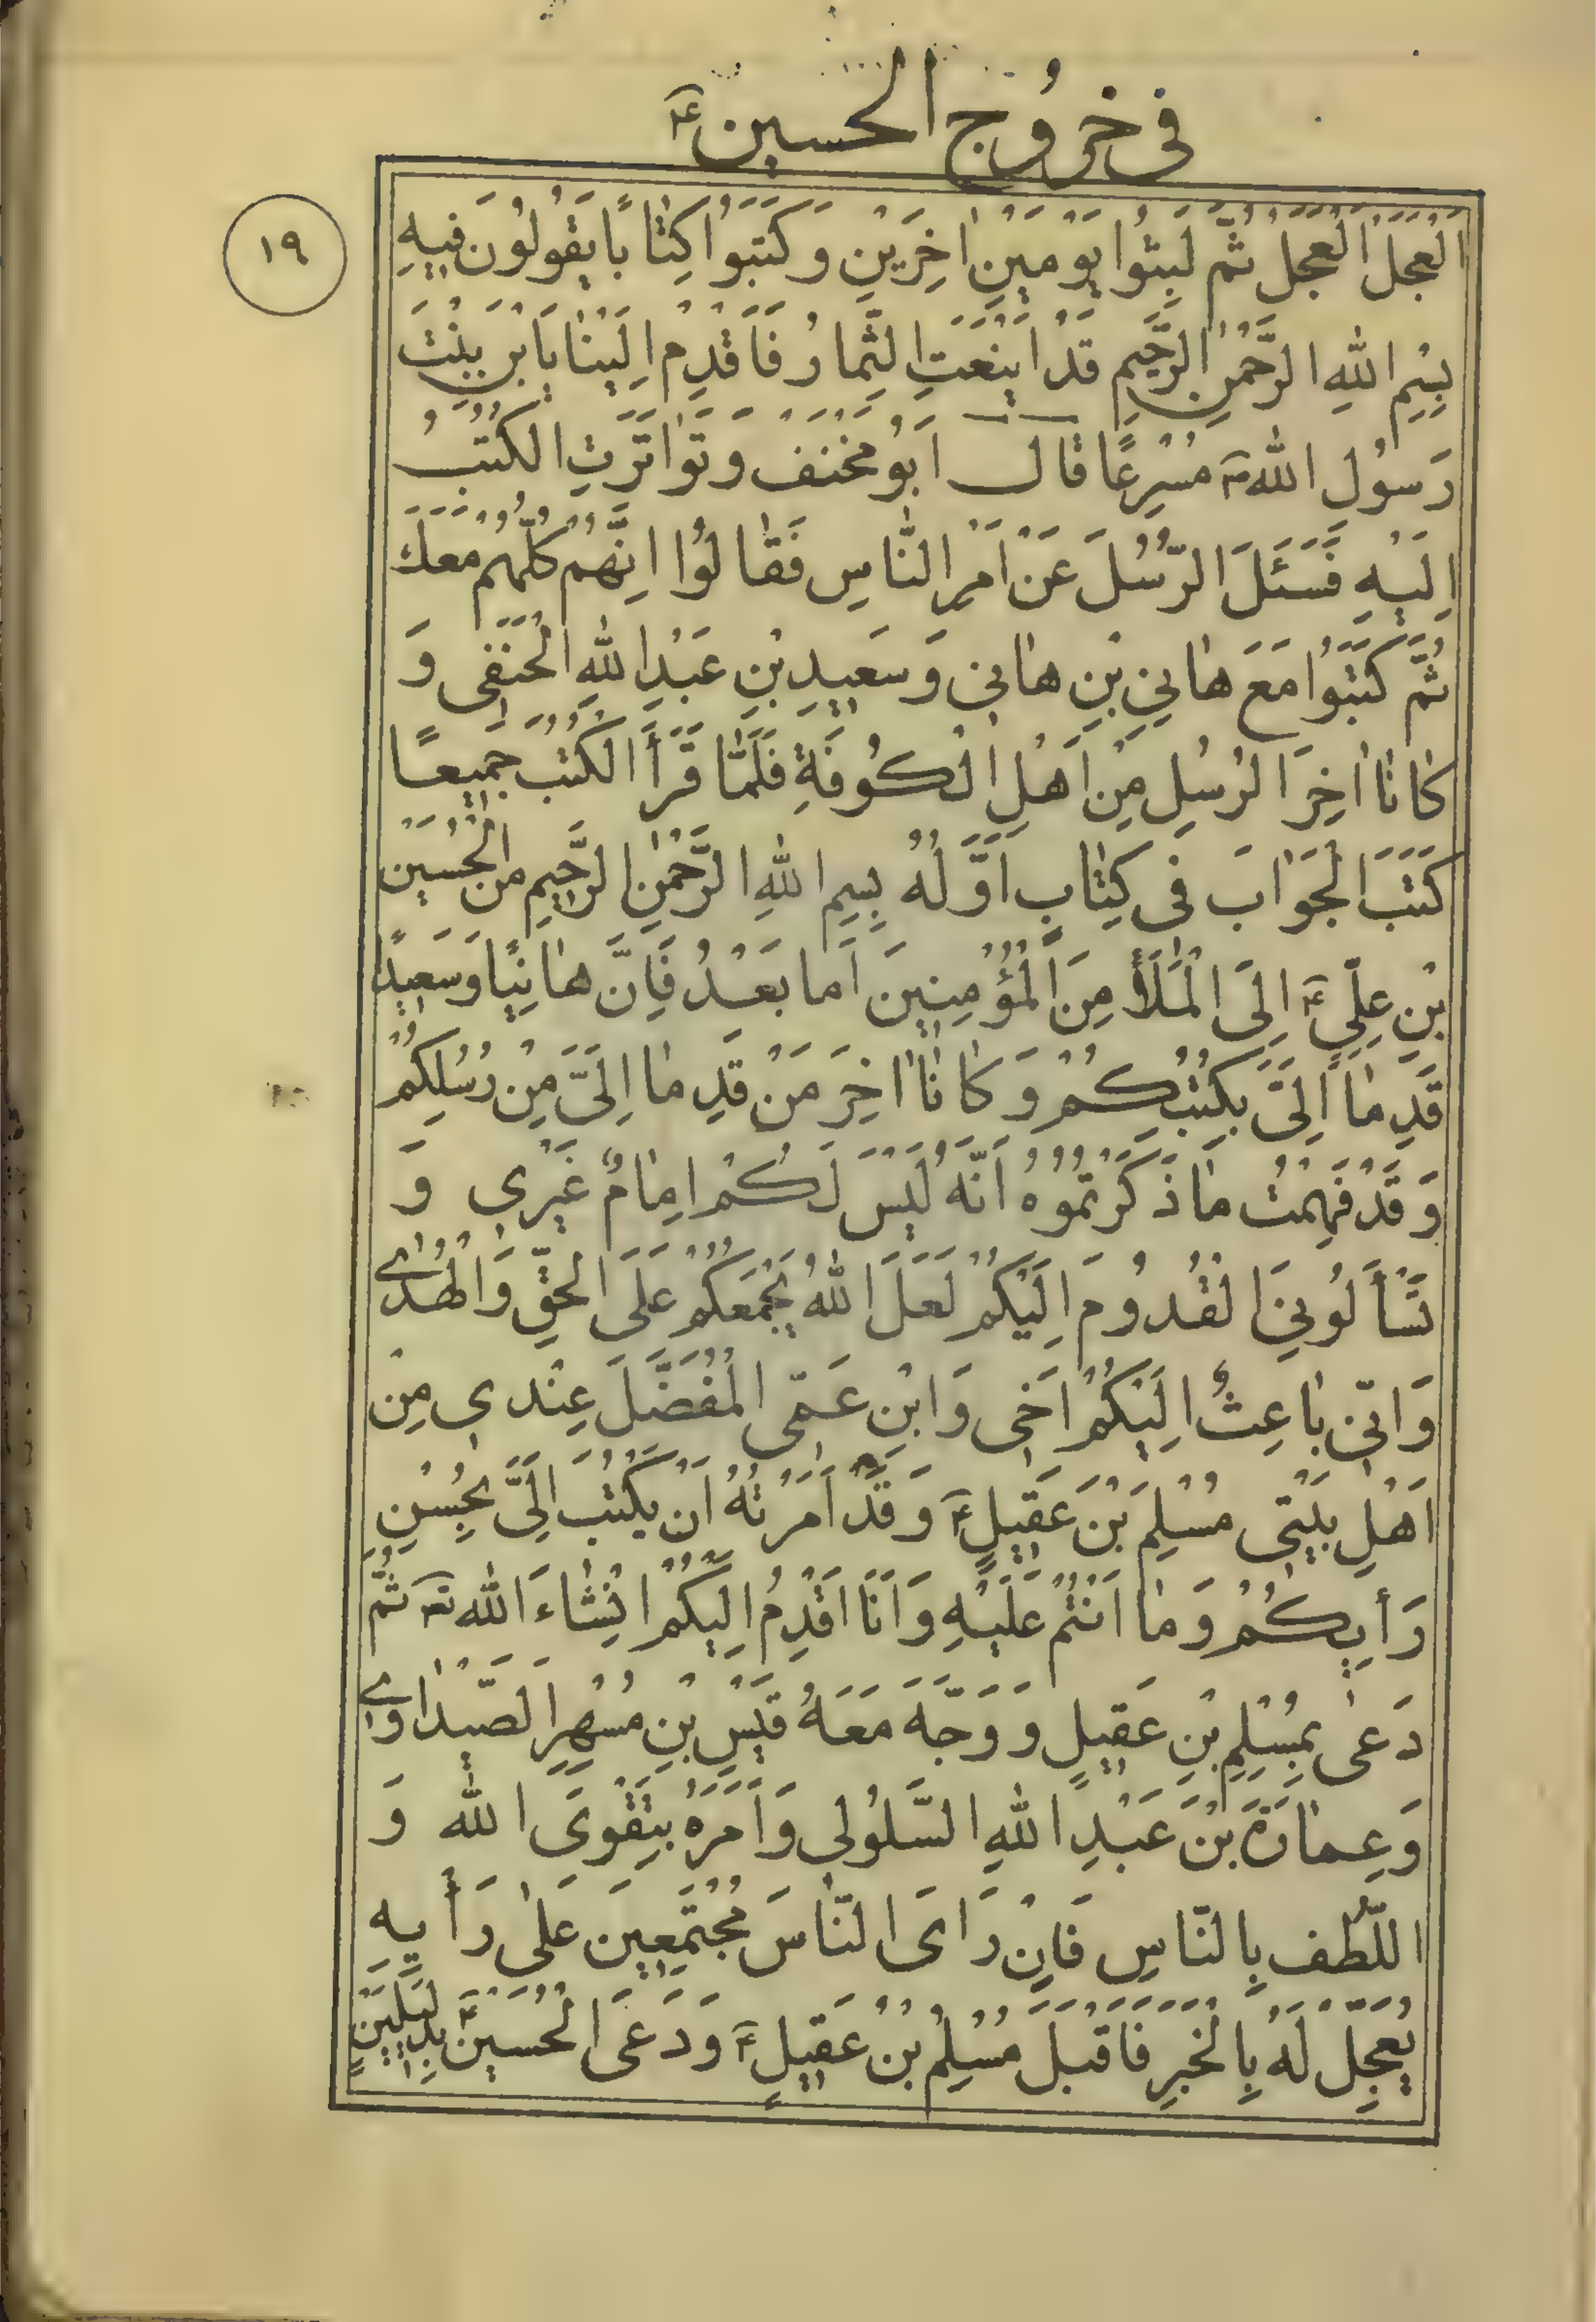 فى خرُوج الحسين ع
١٩
اَلْعَجَلَ الْعَجَلَ ثُمَّ لَبِثُوا يَوْمَيْنِ اٰخِرَيْنِ وَ كَتَبَوُا كِتٰابًا يَقُولُونَ فيهِ
بِسْمِ اللهِ الرَّحْمٰنِ الرَّحيمِ قَدْ اَيْنَعَتِ الثِّمارُ فَاَقْدِمْ اِلَيْنٰا يَا بْنَ بِنْتَ
رَسُولِ اللهِ ص مُسْرِعًا قالَ اَبُو مَخْنَفْ وَ تَوٰاتَرَتِ الكُتُبُ
اِلَيْهِ فَسَئَلَ الرُّسُلَ عَنْ اَمْرِ النّٰاسِ فَقٰالُوا اِنَّهُمْ كُلُّهُمْ مَعَكَ
ثُمَّ كَتَبَوُا مَعَ هٰانِي بْنِ هٰاني وَ سَعيدِ بْنِ عَبْدِ اللهِ الْحَنَفِى وَ
كٰانٰا اٰخِرَ الرُسُلِ مِنْ اَهْلِ الْكُوفَةِ فَلَمّٰا قَرَأَ الكُتُبَ جَميعًا
كَتَبَ الْجَوٰابَ فى كِتٰابٍ اَوَّلُهُ بِسمِ اللهِ الرَّحْمٰنِ الرَّحيمِ مِنَ الْحُسَيْنِ
بْنِ عِلِّىٍ ع اِلَى الْمَلَأِ مِنَ الْمُؤْمِنينَ اَما بَعْدُ فَاِنَّ هٰانِيًا وَ سَعيدً
قَدِ مٰا اِلَىَّ بِكُتُبِكُمْ وَ كٰانٰا اٰخِرَ مَنْ قَدِ مٰا اِلَىَّ مِنْ رُسُلِكُمْ
وَ قَدْ فَهِمْتُ مٰا ذَكَرْتمُوُهُ اَنَّهُ لَيْسَ لَكُمْ اِمٰامٌ غَيْرِي وَ
تَسْأَلُونِىَ الْقُدُومَ اِلَيْكُمْ لَعَلَ اللهُ يَجْمَعَكُمْ عَلَى الْحَقِّ وَ الْهُدٰى
وَ اِنّى بٰاعِثٌ اِلَيْكُمْ اَخى وَ ابْنِ عَمّى الْمُفَضَّلَ عِنْدي مِنْ
اَهْلِ بَيْتى مُسْلِمَ بْنَ عَقيلٍ ع وَ قَدْ اَمَرْتُهُ اَنْ يَكْتُبَ اِلَىَّ بِحُسْنِ
رَأيِكُمْ وَ مٰا اَنْتُمْ عَلَيْهِ وَ اَنَا اَقْدِمُ اِلَيْكُمْ انْشٰاءَ الله تع ثُمَّ
دَعٰى بِمُسْلِمِ بْنِ عَقيلٍ وَ وَجَّهَ مَعَهُ قَيْسِ بْنِ مُسْهِرِ الصَّيْدٰاوى
وَ عِمٰارَةَ بْنَ عَبْدِ اللهِ السَّلُولى وَ اَمَرَهُ بِتَقْوىَ الله وَ
اللُّطْف بِالنّاسِ فَاِنْ رَاىَ النّٰاسَ مُجْتَمِعينَ عَلٰى رَأْيِهِ
يُعَجِّلْ لَهُ بِالْخَبَرِ فَاَقْبَلَ مُسْلِمُ بْنُ عَقيلٍ ع وَ دَعَى الْحُسَيْنَ ع بِدِليلَيْنِ